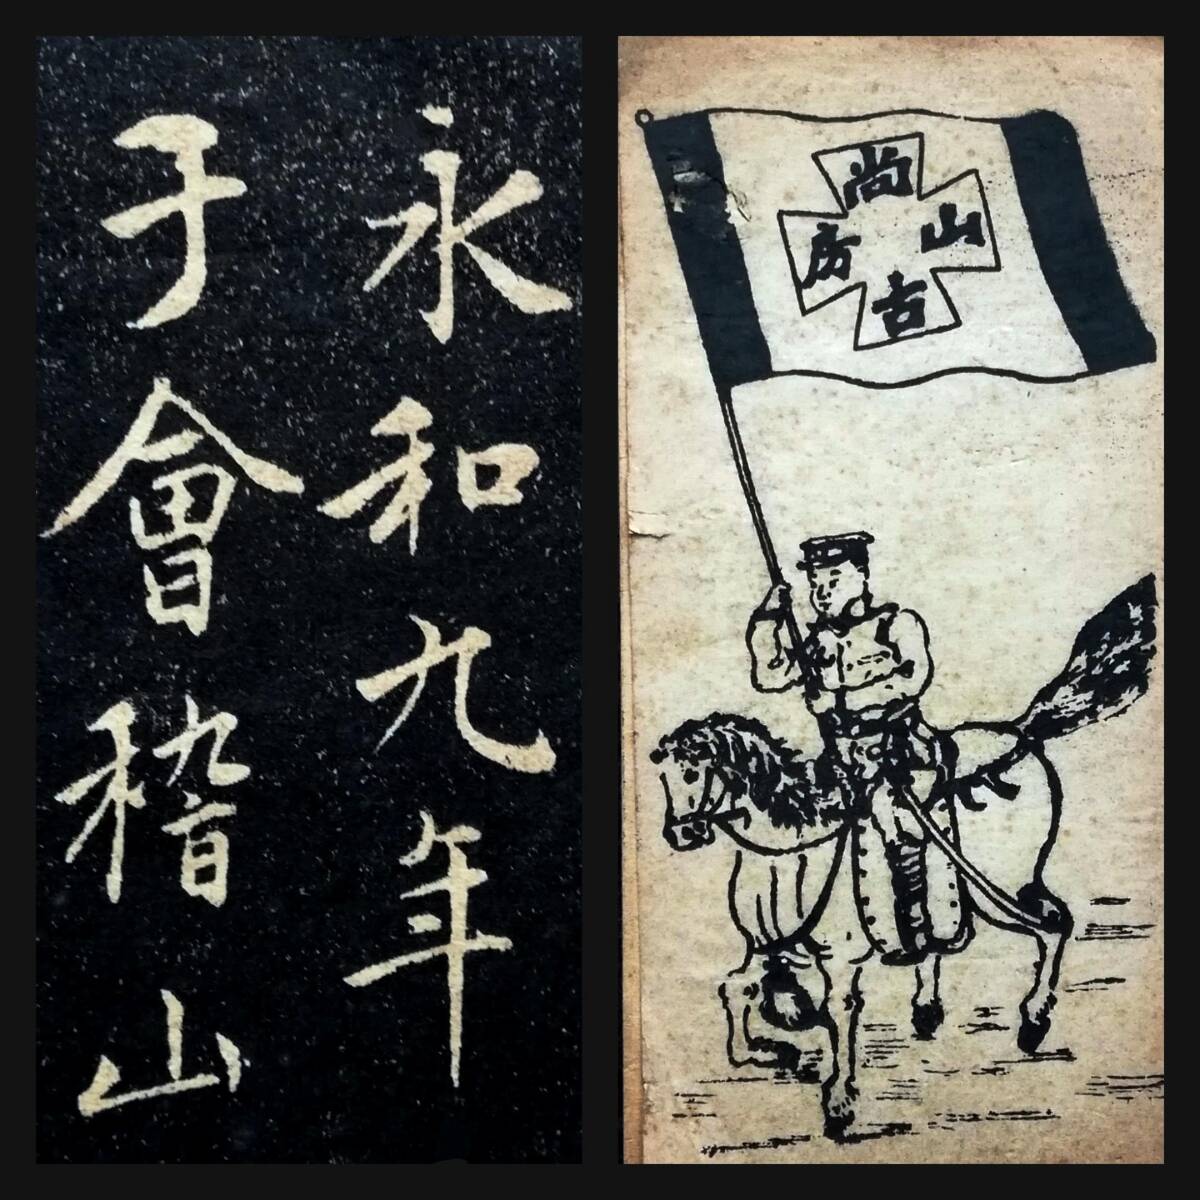 永和九年
于會稽山
尚古山房